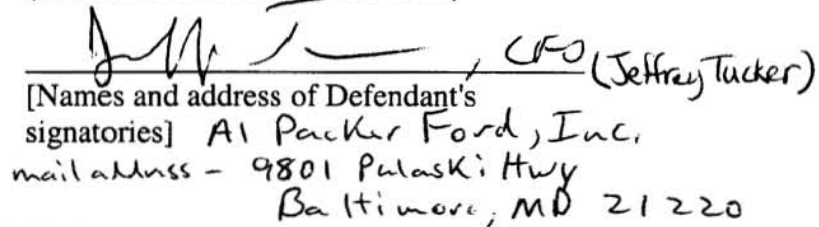 , CFO (Jeffrey Tucker)
[Names and address of Defendant's
signatories] Al Packer Ford, Inc.
mail address - 9801 Pulaski Hwy
Baltimore, MD 21220